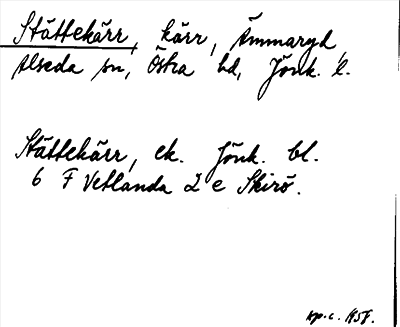 Stättekärr, kärr, Ämmaryd,
Alseda sn, Östra hd, Jönk. l.
Stättekärr, ek. Jönk. bl.
6 F Vetlanda 2 e Skirö.
1958.